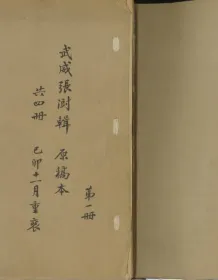 武威張澍輯 原稿本
第一冊
共四冊
己卯十一月重裝